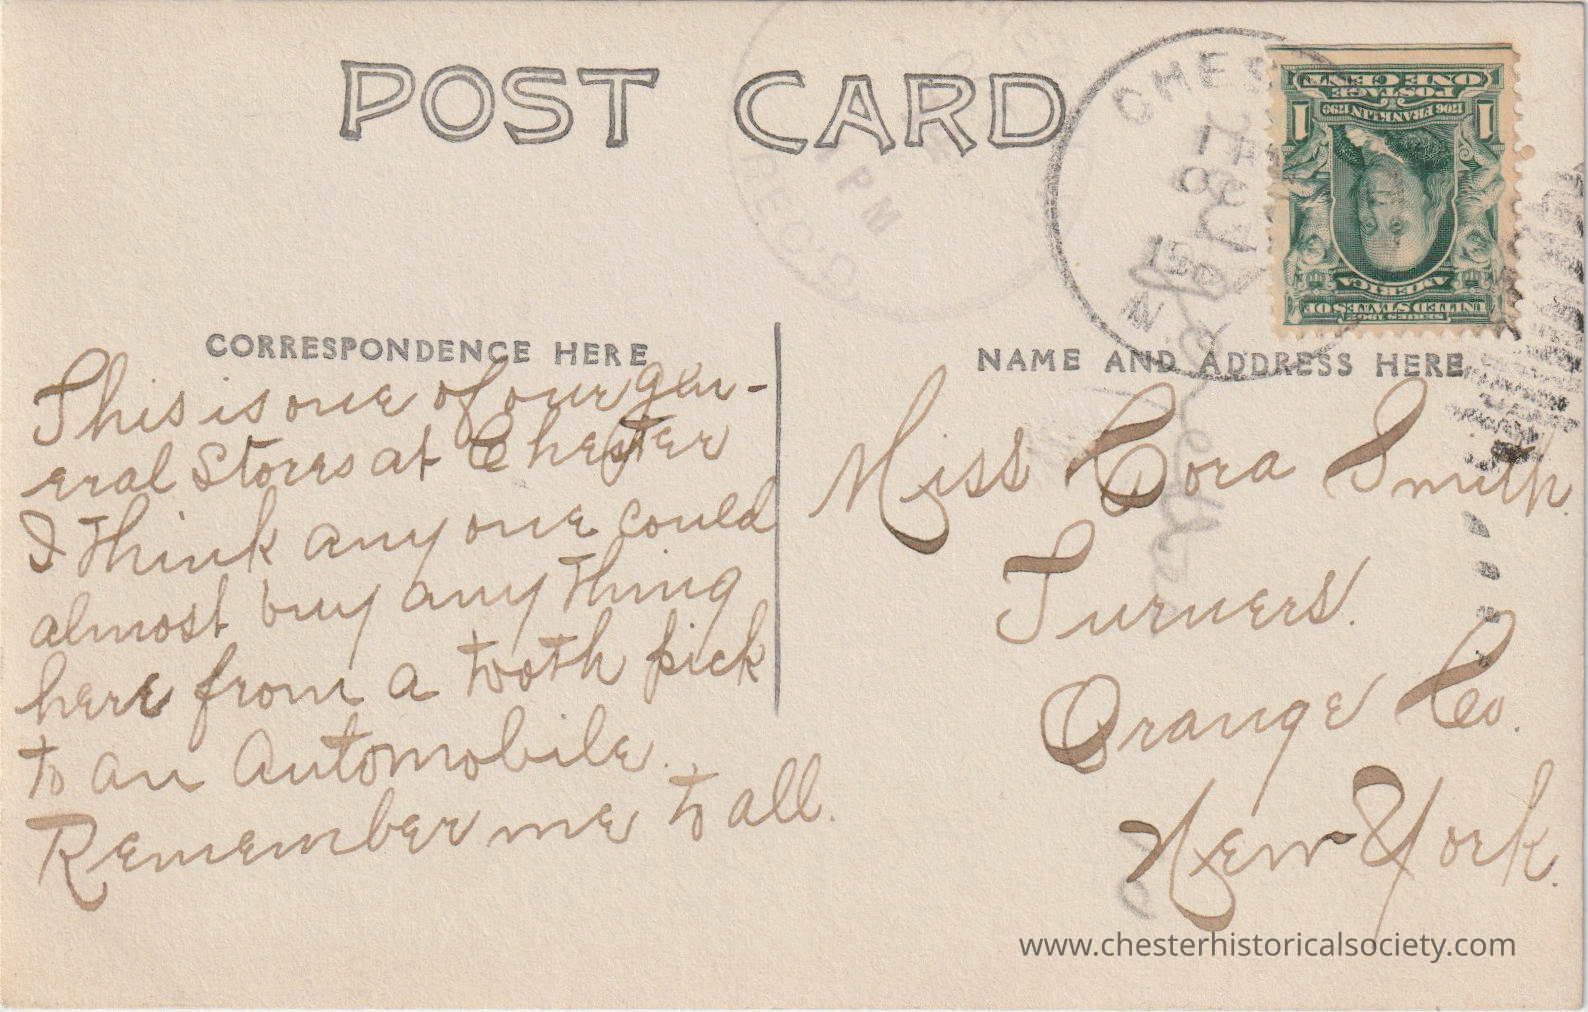 POST CARD
CHES
1 PM
REC'D
190
N
ONE CENT
POSTAGE
1706 FRANKLIN 1790
1 1
AMERICA
UNITED STATES OF
SERIES 1902
CORRESPONDENCE HERE
This is one of our gen-
eral Stores at Chester
I think any one could
almost buy any thing
here from a tooth pick
to an Automobile.
Remember me to all.
NAME AND ADDRESS HERE
Miss Cora Smith.
Turners.
Orange Co.
New York.
www.chesterhistoricalsociety.com